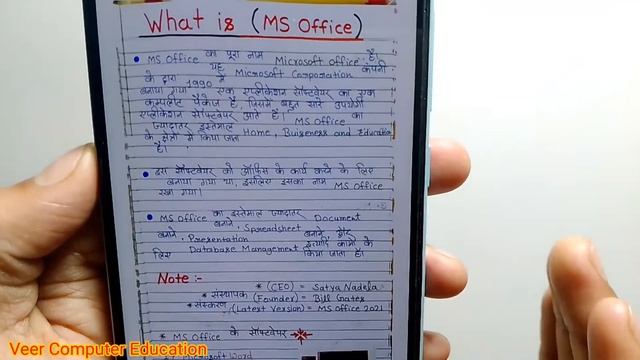 What is (MS Office)
MS Office का पूरा नाम Microsoft office है।
यह Microsoft Corporation कंपनी
के द्वारा 1990 में
बनाया गया एक एप्लीकेशन सॉफ्टवेयर का एक
कम्पलीट पैकेज है, जिसमें बहुत सारे उपयोगी
एप्लीकेशन सॉफ्टवेयर आते हैं। MS Office का
ज्यादातर इस्तेमाल
के क्षेत्रों में किया जाता Home, Buiseness and Education
है।
इस सॉफ्टवेयर को ऑफिस के कार्य करने के लिए
बनाया गया था, इसलिए इसका नाम MS Office
रखा गया।
MS Office का इस्तेमाल ज्यादातर Document
बनाने, Spreadsheet बनाने, और
बनाने, Presentation
लिए Database Management इत्यादि कामों के
किया जाता है।
Note :-
* (CEO) = Satya Nadela
* संस्थापक (Founder) = Bill Gates
* संस्करण (Latest Version) = MS Office 2021
* MS Office के सॉफ्टवेयर
soft Word
Veer Computer Education